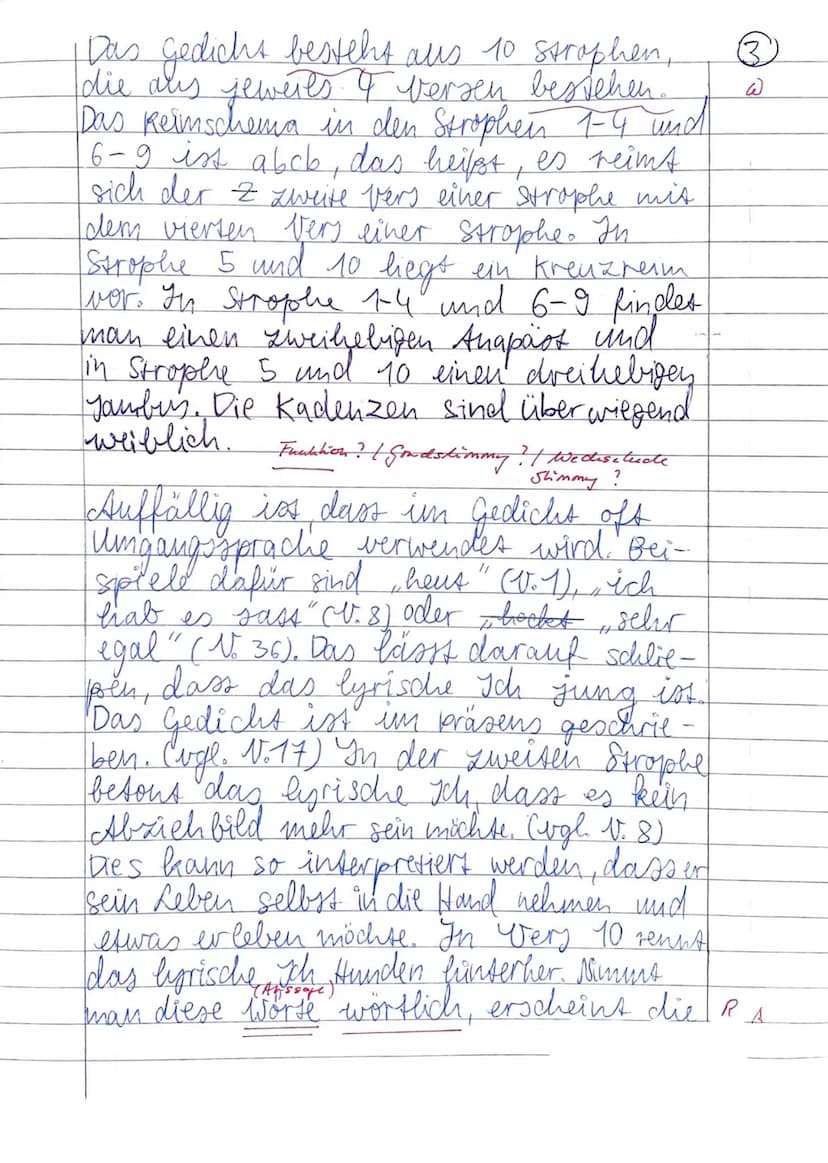 Das Gedicht besteht aus 10 Strophen,
③
die aus jeweils 4 Versen bestehen.
W
Das Reimschema in den Strophen 1-4 und
6-9 ist abcb, das heißt, es reimt
sich der zweite Vers einer Strophe mit
dem vierten Vers einer Strophe. In
Strophe 5 und 10 liegt ein Kreuzreim
vor. In Strophe 1-4 und 6-9 findet
man einen zweihebigen Anapäst und
in Strophe 5 und 10 einen dreihebigen
Jambus. Die Kadenzen sind überwiegend
weiblich.
Funktion? / Grundstimmg? / Wechselnde
Stimmg?
Auffällig ist, dass im Gedicht oft
Umgangssprache verwendet wird. Bei-
spiele dafür sind „heut" (V.1), „ich
hab es satt" (V. 8) oder „hocket „sehr
egal" (V. 36). Das lässt darauf schlie-
ßen, dass das lyrische Ich jung ist.
Das Gedicht ist im Präsens geschrie-
ben. (vgl. V.17) In der zweiten Strophe
betont das lyrische Ich, dass es kein
Abziehbild mehr sein möchte. (vgl. V. 8)
Dies kann so interpretiert werden, dass er
sein Leben selbst in die Hand nehmen und
etwas erleben möchte. In Vers 10 rennt
das lyrische Ich Hunden hinterher. Nimmt
(Aussage)
man diese Worte wörtlich, erscheint die
R A